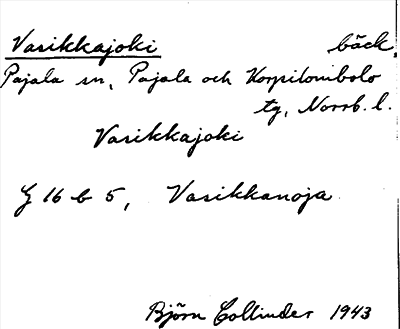 Vasikkajoki bäck,
Pajala sn, Pajala och Korpilombolo
tg, Norrb. l.
Vasikkajoki
G 16 b 5, Vasikkanoja
Björn Collinder 1943